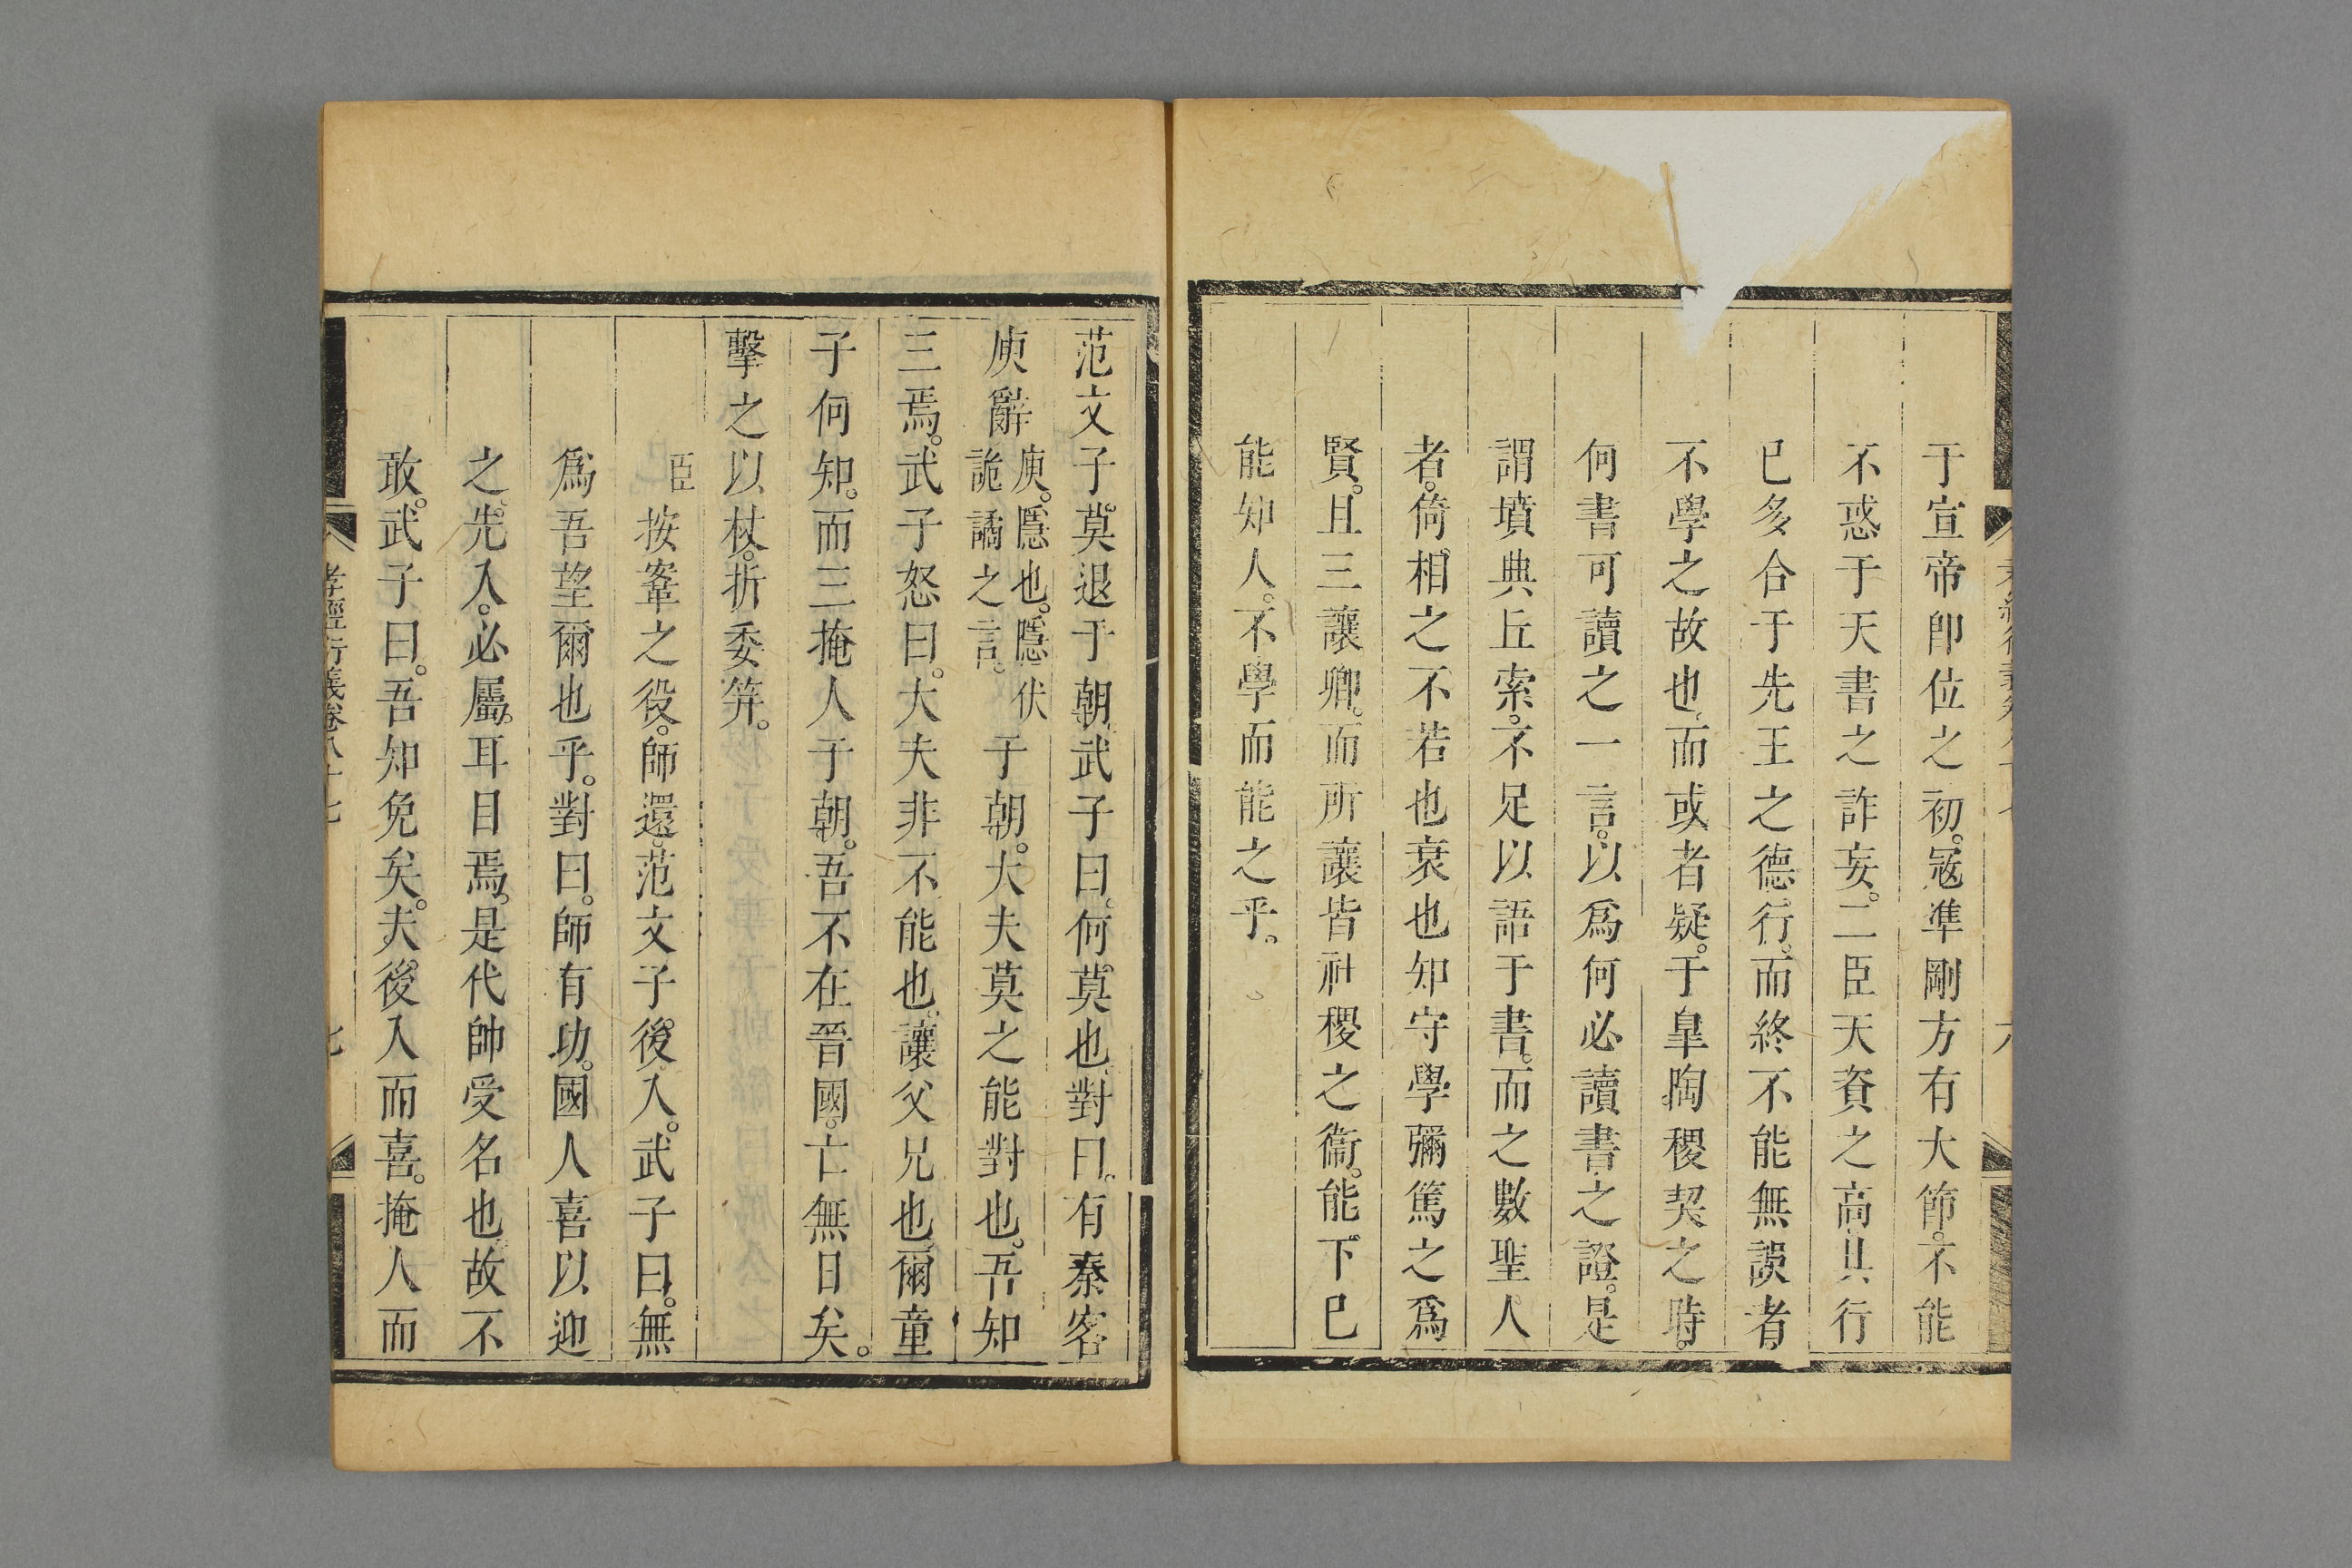 于宣帝卽位之初。寇準剛方有大節。不能
不惑于天書之詐妄。二臣天資之高。其行
已多合于先王之德行。而終不能無誤者
不學之故也。而或者疑。于臯陶稷契之時。
何書可讀之一言。以爲何必讀書之證。是
謂墳典丘索。不足以語于書。而之數聖人
者。倚相之不若也。衰也知守學彌篤之爲
賢。且三讓卿。而所讓皆社稷之衞。能下已
能知人。不學而能之乎。
范文子。莫退于朝。武子曰。何莫也。對曰。有秦客
庾辭庾。隱也。隱伏詭譎之言。于朝。大夫莫之能對也。吾知
三焉。武子怒曰。大夫非不能也。讓父兄也。爾童
子何知。而三掩人于朝。吾不在晉國。亡無日矣。
擊之以杖。折委笄。
臣按鞌之役。師還。范文子後入。武子曰。無
爲吾望爾也乎。對曰。師有功。國人喜以迎
之。先入。必屬。耳目焉。是代帥受名也。故不
敢。武子曰。吾知免矣。夫後入而喜。掩人而
孝經衍義卷八十七
七